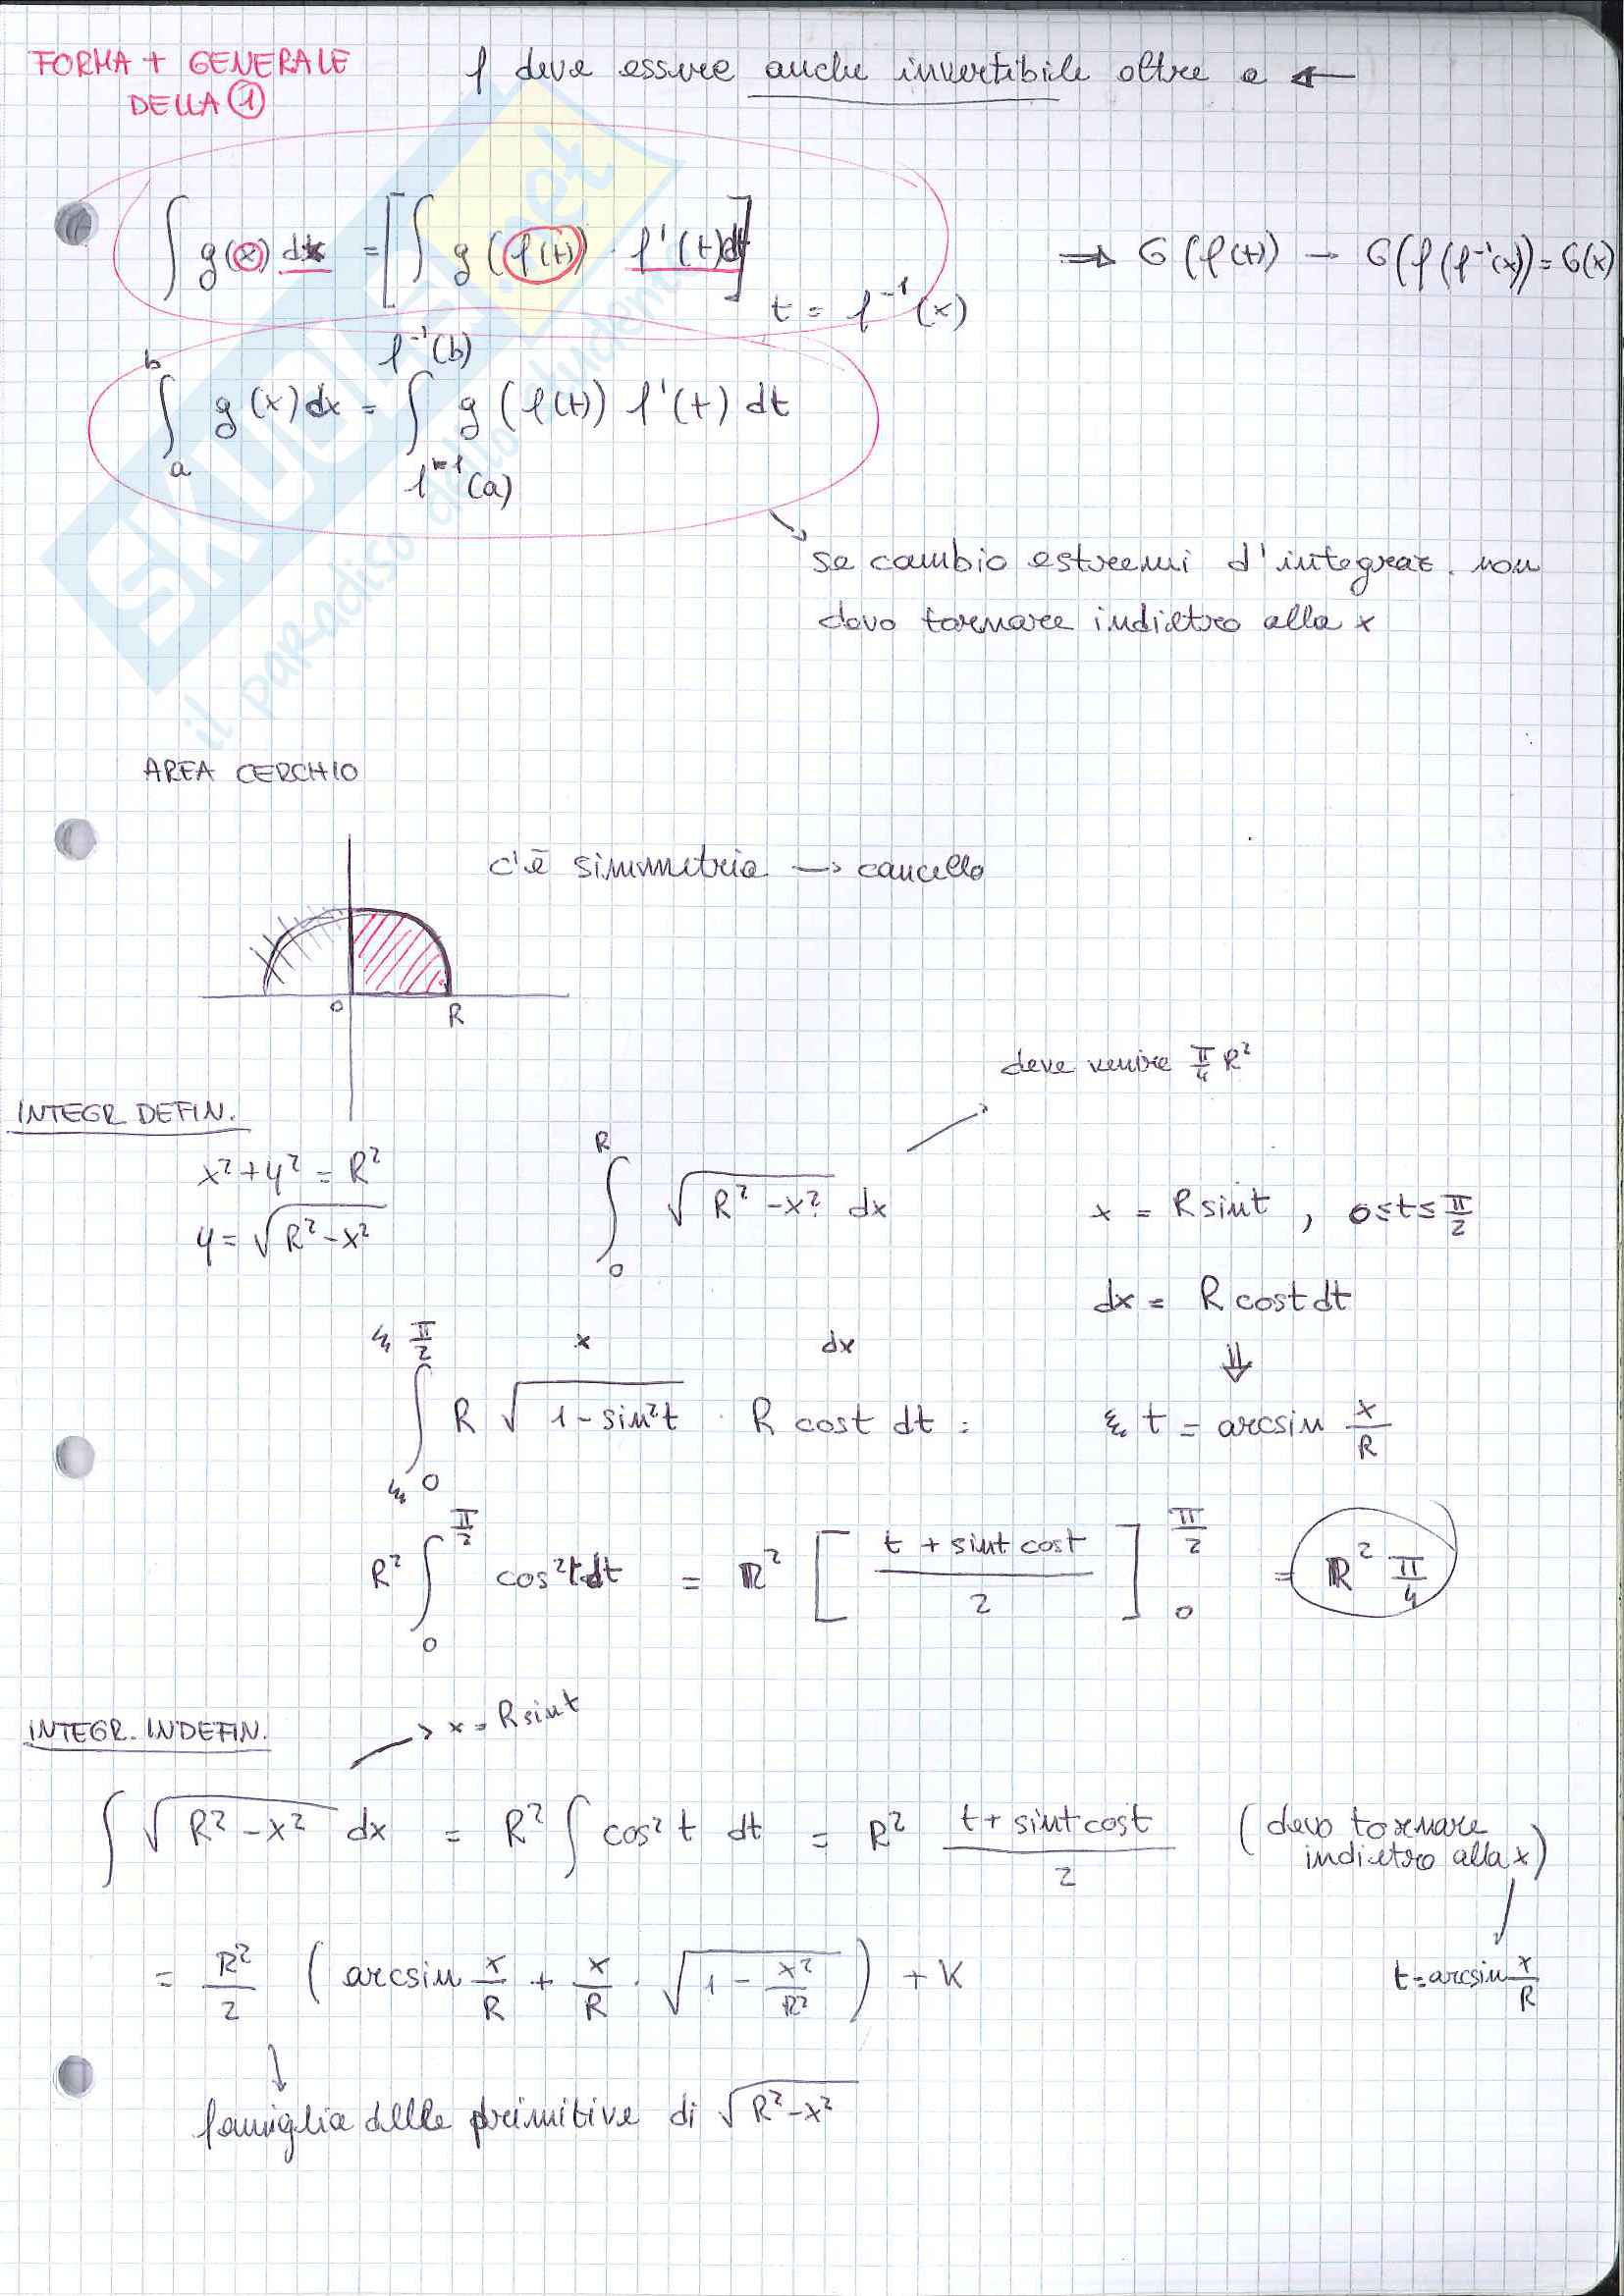 FORMA + GENERALE
DELLA ①
f deve essere anche invertibile oltre a ←
∫ g(x) dx = [∫ g(f(t)) · f'(t)dt] t = f⁻¹(x)
⇒ G(f(t)) → G(f(f⁻¹(x)) = G(x)
∫ₐᵇ g(x)dx = ∫ g(f(t)) f'(t) dt
f⁻¹(b)
f⁻¹(a)
se cambio estremi d'integraz. non
devo tornare indietro alla x
SKUOLA.net
il paradiso dello studente
AREA CERCHIO
c'è simmetria → cancello
0 R
deve venire π/4 R²
INTEGR. DEFIN.
x² + y² = R²
y = √(R²-x²)
∫₀ᴿ √(R²-x²) dx
x = R sint , 0≤t≤π/2
dx = R cost dt
⇓
x dx
∫₀^(π/2) R √(1-sin²t) · R cost dt =
t = arcsin x/R
R² ∫₀^(π/2) cos²t dt = R² [(t + sint cost)/2]₀^(π/2) = R² π/4
INTEGR. INDEFIN.
→ x = R sint
∫ √(R²-x²) dx = R² ∫ cos² t dt = R² (t + sint cost)/2 (devo tornare
indietro alla x)
= R²/2 (arcsin x/R + x/R · √(1 - x²/R²)) + K
t = arcsin x/R
famiglia delle primitive di √(R²-x²)